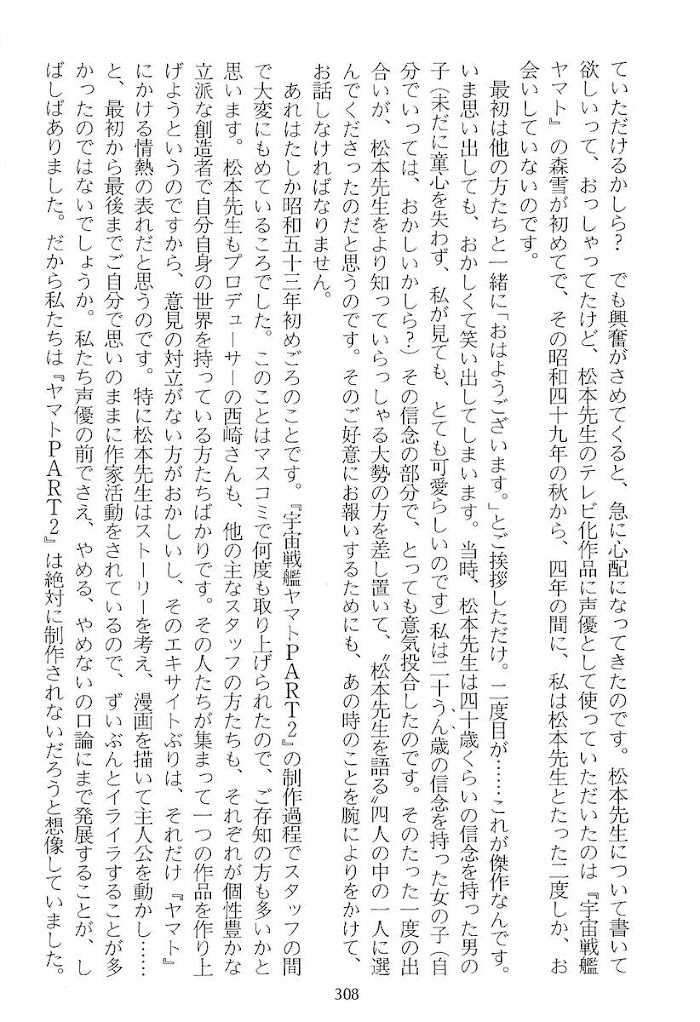 ていただけるかしら？　でも興奮がさめてくると、急に心配になってきたのです。松本先生について書いて
欲しいって、おっしゃってたけど、松本先生のテレビ化作品に声優として使っていただいたのは『宇宙戦艦
ヤマト』の森雪が初めてで、その昭和四十九年の秋から、四年の間に、私は松本先生とたった二度しか、お
会いしていないのです。
　最初は他の方たちと一緒に「おはようございます。」とご挨拶しただけ。二度目が……これが傑作なんです。
いま思い出しても、おかしくて笑い出してしまいます。当時、松本先生は四十歳くらいの信念を持った男の
子（未だに童心を失わず、私が見ても、とても可愛らしいのです）私は二十うん歳の信念を持った女の子（自
分でいっては、おかしいかしら？）その信念の部分で、とっても意気投合したのです。そのたった一度の出
合いが、松本先生をより知っていらっしゃる大勢の方を差し置いて、〝松本先生を語る〟四人の中の一人に選
んでくださったのだと思うのです。そのご好意にお報いするためにも、あの時のことを腕によりをかけて、
お話しなければなりません。
　あれはたしか昭和五十三年初めごろのことです。『宇宙戦艦ヤマトＰＡＲＴ２』の制作過程でスタッフの間
で大変にもめているころでした。このことはマスコミで何度も取り上げられたので、ご存知の方も多いかと
思います。松本先生もプロデューサーの西崎さんも、他の主なスタッフの方たちも、それぞれが個性豊かな
立派な創造者で自分自身の世界を持っている方たちばかりです。その人たちが集まって一つの作品を作り上
げようというのですから、意見の対立がない方がおかしいし、そのエキサイトぶりは、それだけ『ヤマト』
にかける情熱の表れだと思うのです。特に松本先生はストーリーを考え、漫画を描いて主人公を動かし……
と、最初から最後までご自分で思いのままに作家活動をされているので、ずいぶんとイライラすることが多
かったのではないでしょうか。私たち声優の前でさえ、やめる、やめないの口論にまで発展することが、し
ばしばありました。だから私たちは『ヤマトＰＡＲＴ２』は絶対に制作されないだろうと想像していました。
308